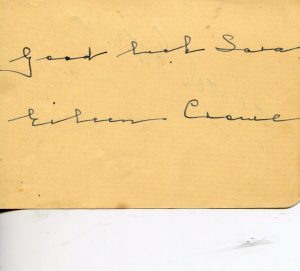 Good luck Sara
Eileen Crowe